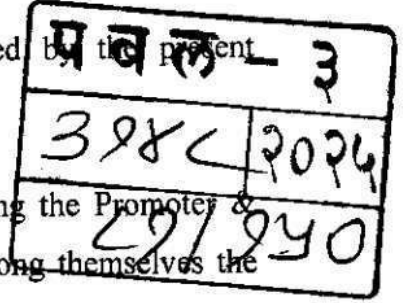 ed by the present
प व ल - ३
३१४८ २०२५
ng the Promoter &
/ १५०
ong themselves the